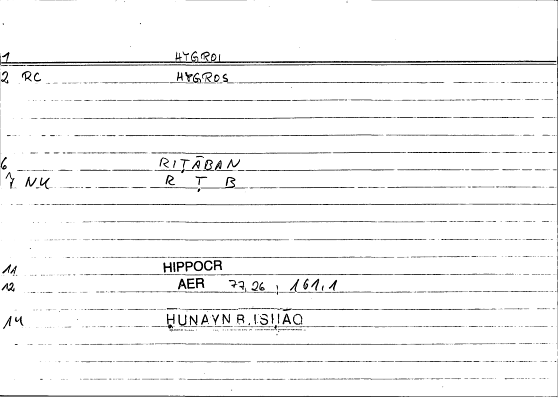 1 HYGROI
2 RC HYGROS
6 RIṬĀBAN
7 NU R Ṭ B
11 HIPPOCR
12 AER 77,26 , 161,1
14 ḤUNAYN B. ISḤĀQ